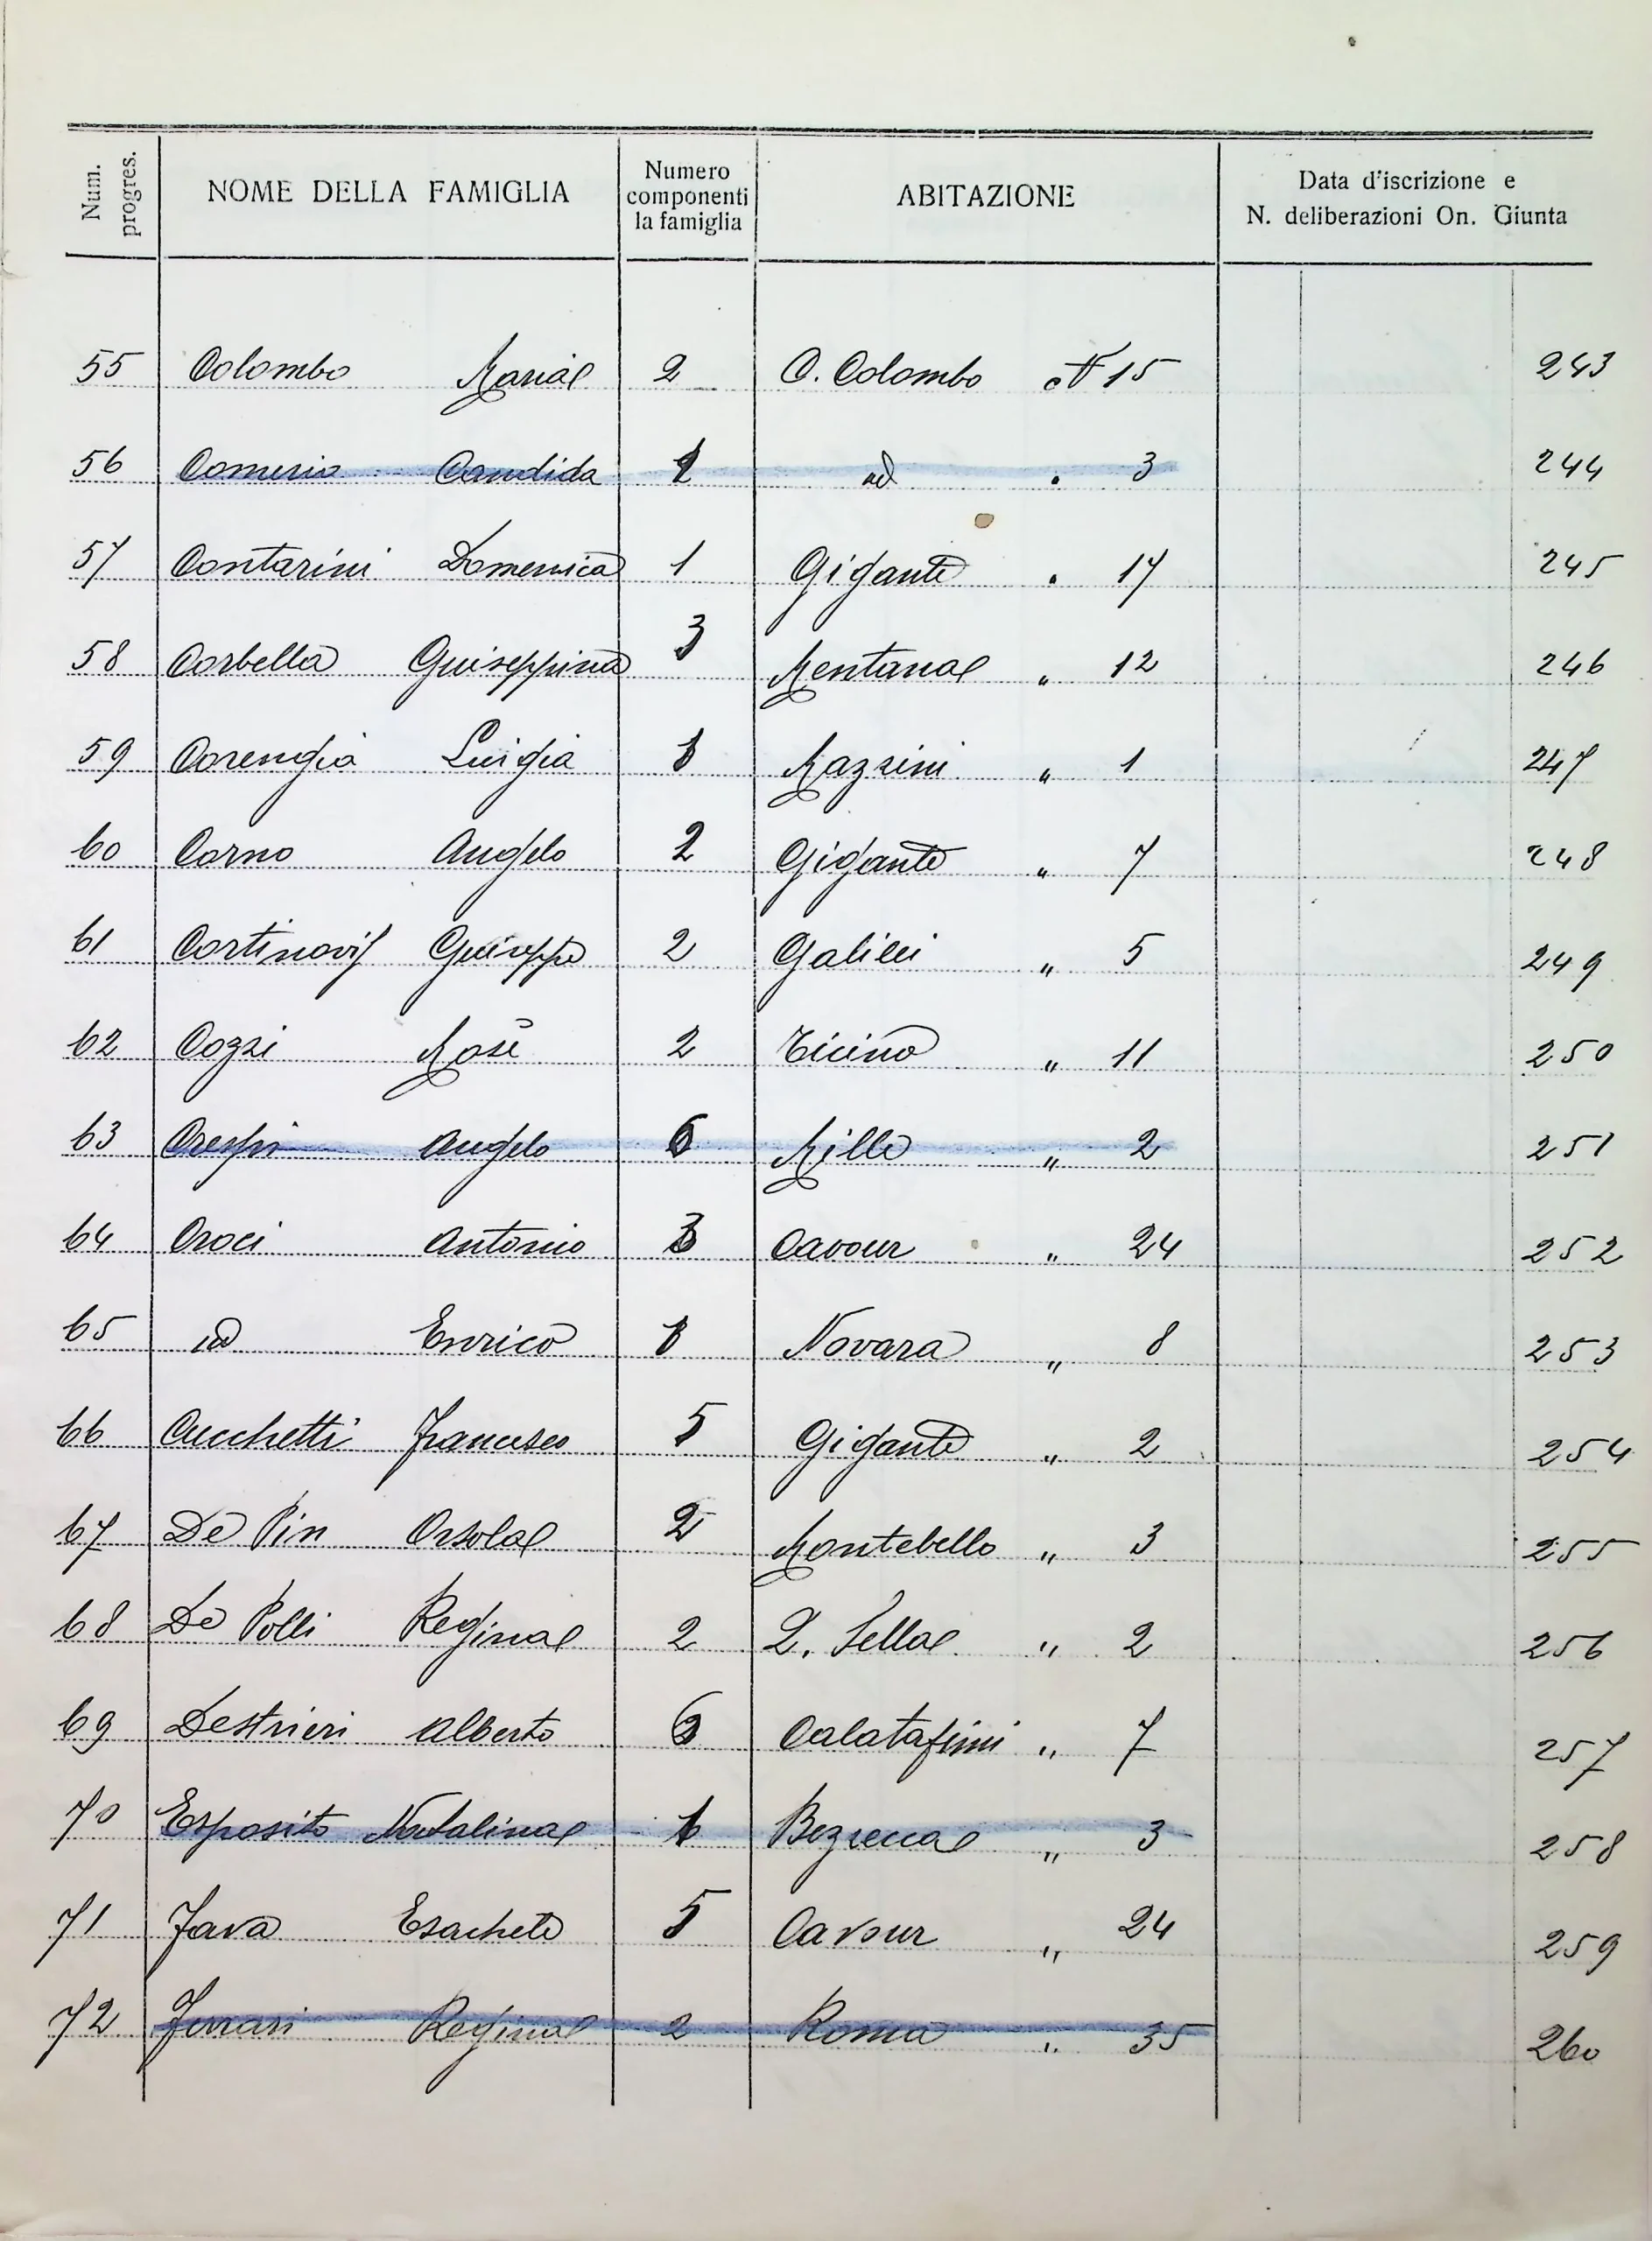 Num. progres. NOME DELLA FAMIGLIA Numero componenti la famiglia ABITAZIONE Data d'iscrizione e N. deliberazioni On. Giunta
55 Colombo Maria 2 C. Colombo N 15 243
56 Comerio Candida 1 id " 3 244
57 Contarini Domenica 1 Gigante " 17 245
58 Corbella Guiseppina 3 Mentana " 12 246
59 Corengia Luigia 1 Mazzini " 1 247
60 Corno Angelo 2 Gigante " 7 248
61 Cortinovis Guiseppe 2 Galilei " 5 249
62 Cozzi Mosè 2 Ticino " 11 250
63 Crespi Angelo 6 Mille " 2 251
64 Croci Antonio 3 Cavour " 24 252
65 id Enrico 1 Novara " 8 253
66 Cucchetti Francesco 5 Gigante " 2 254
67 De Pin Orsola 2 Montebello " 3 255
68 De Polli Regina 2 Q. Sella " 2 256
69 Destrieri Alberto Calatafimi " 7 257
70 Esposito Natalina 1 Bezzecca " 3 258
71 Fava Esachete 5 Cavour " 24 259
72 Ferrari Regina 2 Roma " 35 260